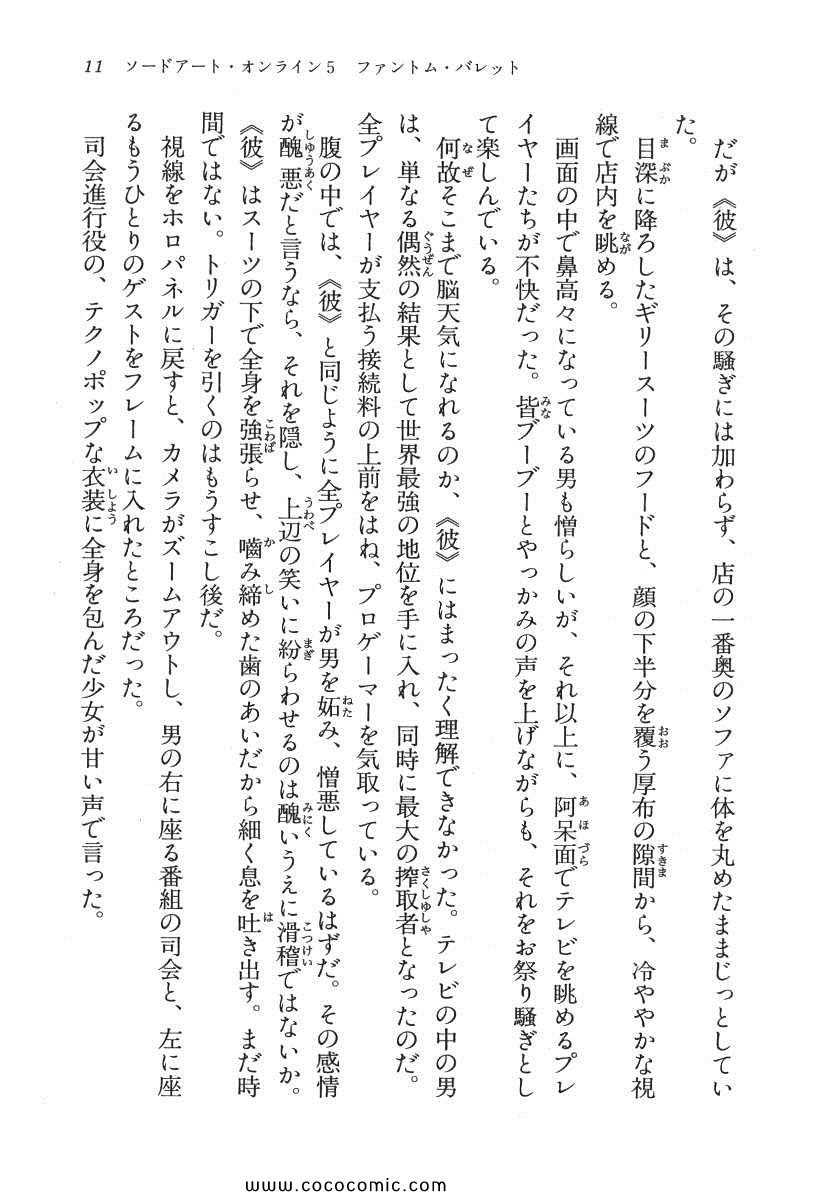 11　ソードアート・オンライン5　ファントム・バレット
だが《彼》は、その騒ぎには加わらず、店の一番奥のソファに体を丸めたままじっとしてい
た。
目深に降ろしたギリースーツのフードと、顔の下半分を覆う厚布の隙間から、冷ややかな視
線で店内を眺める。
画面の中で鼻高々になっている男も憎らしいが、それ以上に、阿呆面でテレビを眺めるプレ
イヤーたちが不快だった。皆ブーブーとやっかみの声を上げながらも、それをお祭り騒ぎとし
て楽しんでいる。
何故そこまで脳天気になれるのか、《彼》にはまったく理解できなかった。テレビの中の男
は、単なる偶然の結果として世界最強の地位を手に入れ、同時に最大の搾取者となったのだ。
全プレイヤーが支払う接続料の上前をはね、プロゲーマーを気取っている。
腹の中では、《彼》と同じように全プレイヤーが男を妬み、憎悪しているはずだ。その感情
が醜悪だと言うなら、それを隠し、上辺の笑いに紛らわせるのは醜いうえに滑稽ではないか。
《彼》はスーツの下で全身を強張らせ、嚙み締めた歯のあいだから細く息を吐き出す。まだ時
間ではない。トリガーを引くのはもうすこし後だ。
視線をホロパネルに戻すと、カメラがズームアウトし、男の右に座る番組の司会と、左に座
るもうひとりのゲストをフレームに入れたところだった。
司会進行役の、テクノポップな衣装に全身を包んだ少女が甘い声で言った。
www.cococomic.com